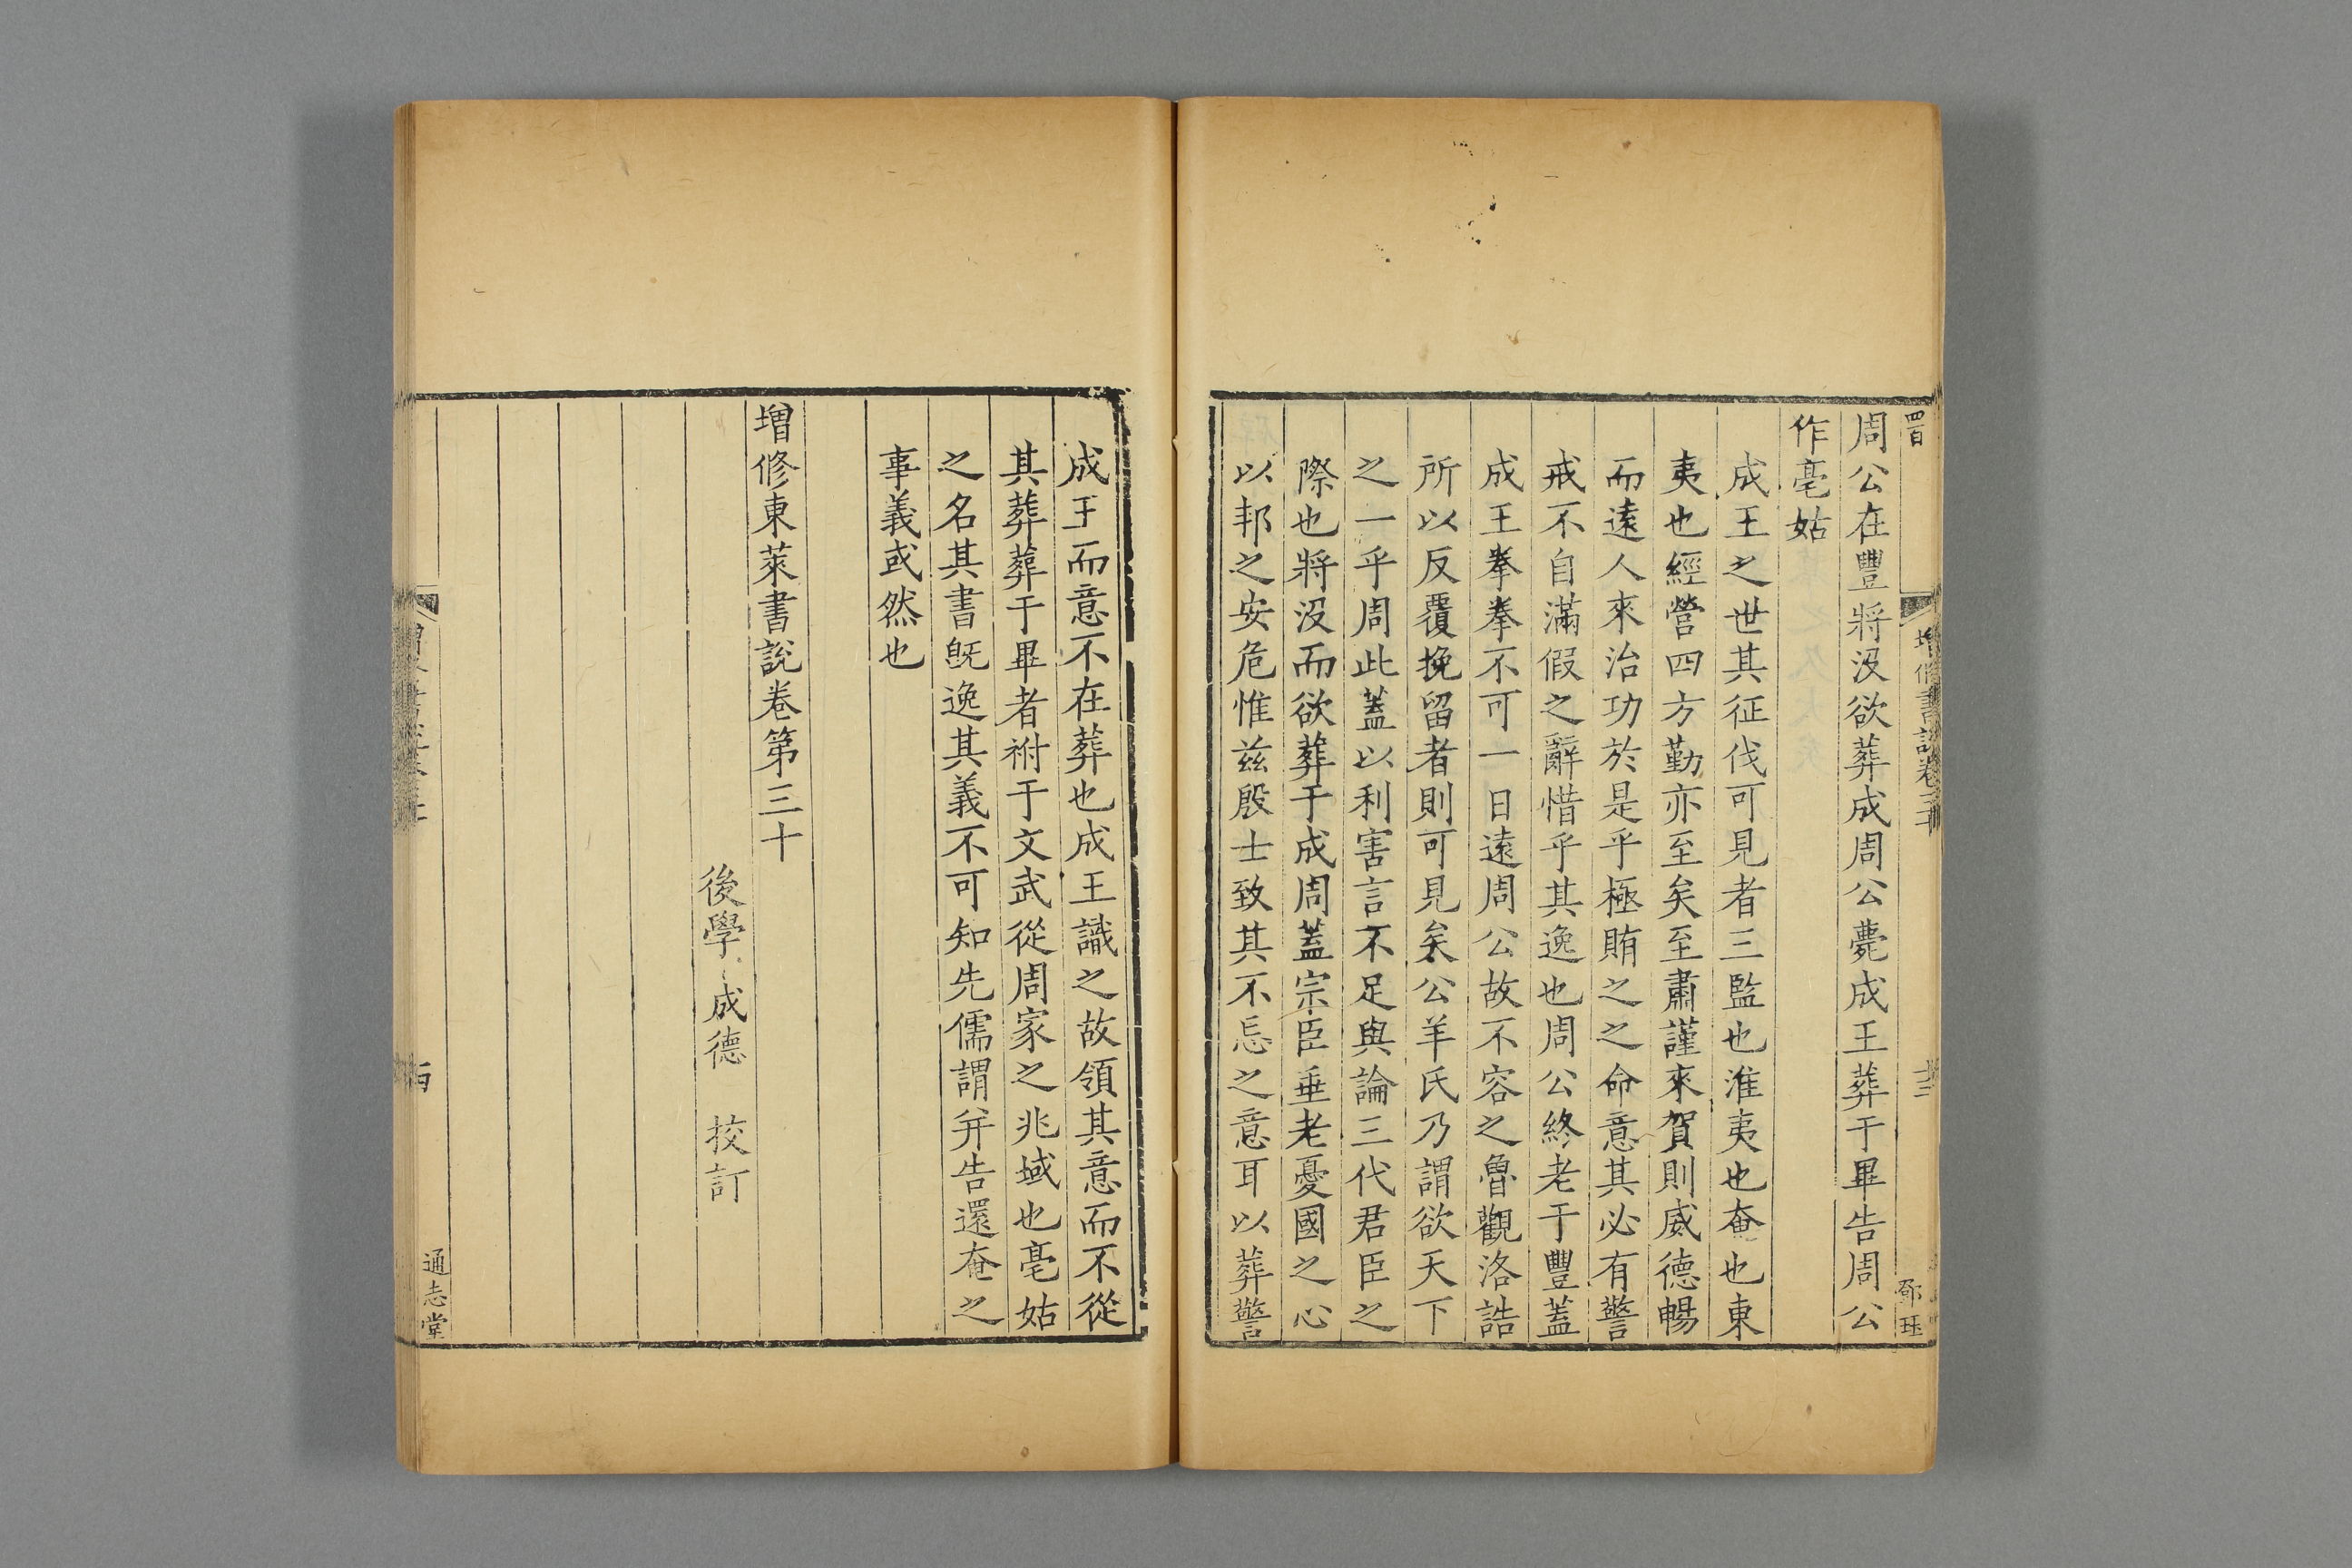 周公在豐將沒欲葬成周公薨成王葬于畢告周公
作亳姑
成王之世其征伐可見者三監也淮夷也奄也東
夷也經營四方勤亦至矣至肅謹來賀則威德暢
而遠人來治功於是乎極賄之之命意其必有警
戒不自滿假之辭惜乎其逸也周公終老于豐蓋
成王拳拳不可一日遠周公故不容之魯觀洛誥
所以反覆挽留者則可見矣公羊氏乃謂欲天下
之一乎周此蓋以利害言不足與論三代君臣之
際也將沒而欲葬于成周蓋宗臣垂老憂國之心
以邦之安危惟茲殷士致其不忘之意耳以葬警
成王而意不在葬也成王識之故領其意而不從
其葬葬于畢者祔于文武從周家之兆域也亳姑
之名其書旣逸其義不可知先儒謂并告還奄之
事義或然也
增修東萊書說卷第三十
後學 成德 挍訂
通志堂